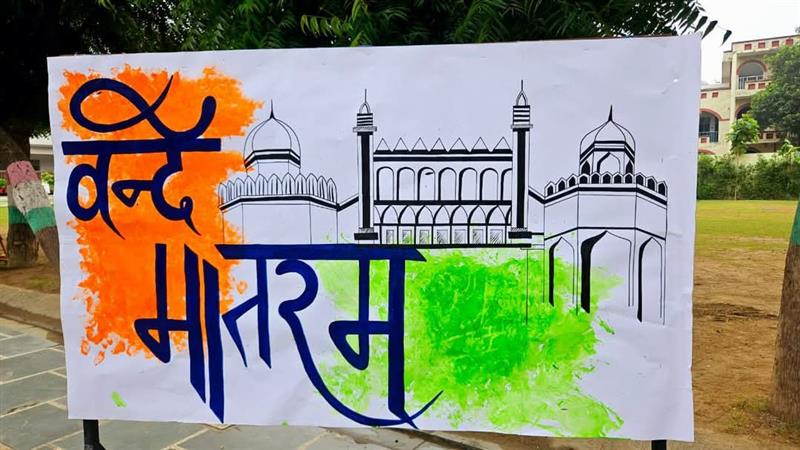 वन्दे
मातरम